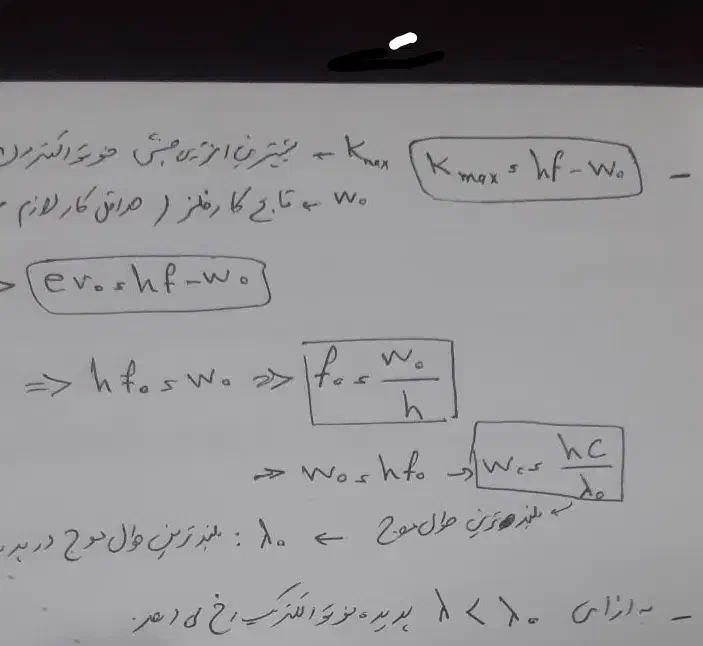 - K max = hf - W₀ K max ← بیشترین انرژی جنبشی فوتوالکترون
W₀ ← تابع کار فلز ( حداقل کار لازم
eV₀ = hf - W₀
=> hf₀ = W₀ => f₀ = W₀ / h
=> W₀ = hf₀ → W₀ = hC / λ₀
← بلندترین طول موج ← λ₀ : بلندترین طول موج در
- به ازای λ < λ₀ پدیده فوتوالکتریک رخ می دهد.